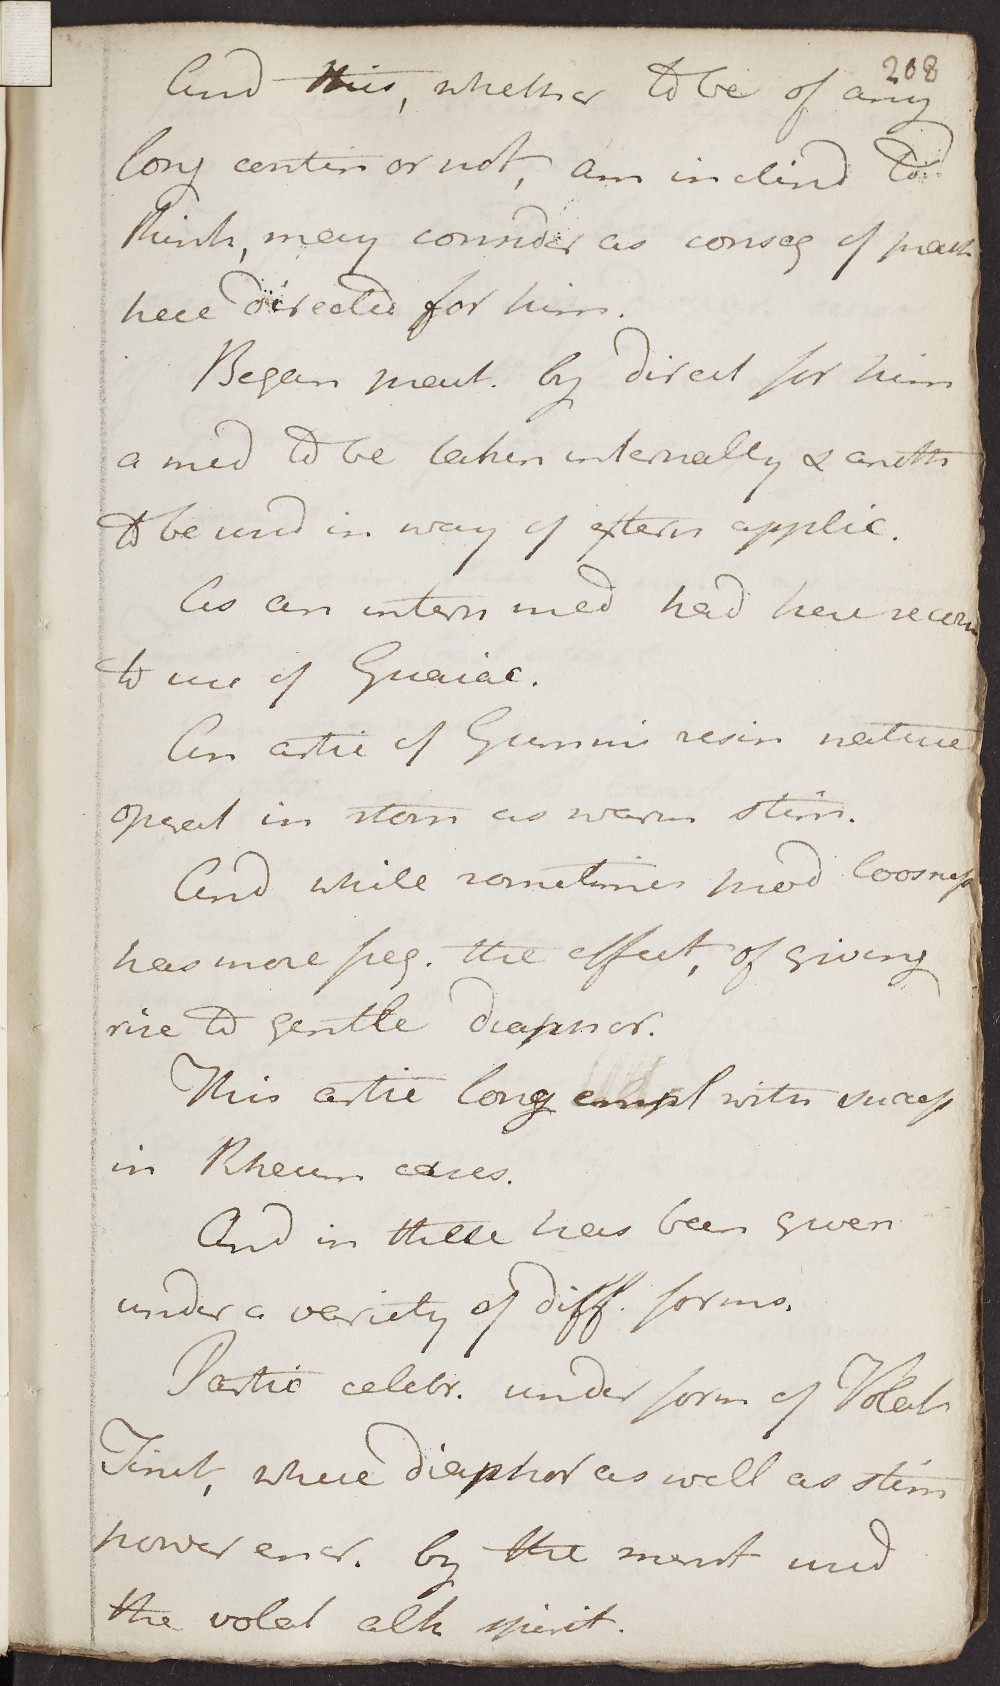 208
And this, whether to be of any
long contin or not, am inclind to
think, may consider as conseq of pract
here directed for him.
Began pract. by direct for him
a med to be taken internally & anoth
to be used in way of extern applic.
As an intern med had here recour
to use of Guaiac.
An artic of Gummi resin nature
operat in stom as warm stim.
And while sometimes prod loosness
has more freq. the effect, of giving
rise to gentle diaphor.
This artic long empl with success
in Rheum cases.
And in these has been given
under a variety of diff. forms.
Partic celebr. under form of Volat
Tinct, where diaphor as well as stim
power encr. by the menst used
the volat alk spirit.